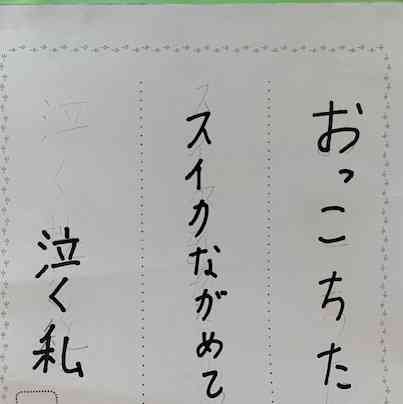 おっこちた
スイカながめて
泣く私